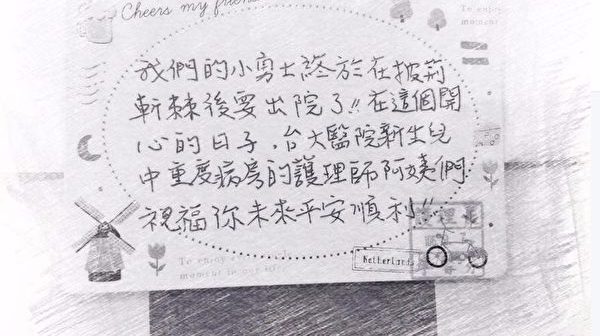 Cheers my frien
To enjoy
moment
我們的小勇士終於在披荊
斬棘後要出院了!!在這個開
心的日子，台大醫院新生兒
中重度病房的護理師阿姨們
祝福你未來平安順利!!
To enjoy
moment in
Netherlands